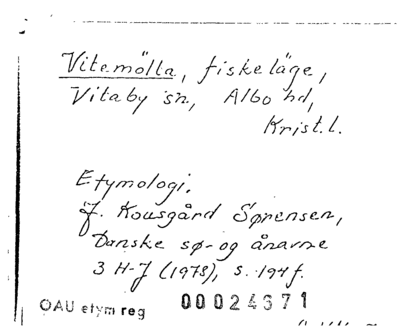 Vitemölla, fiskeläge,
Vitaby sn, Albo hd,
Krist. l.
Etymologi.
J. Kousgård Sørensen,
Danske sø- og ånavne
3 H-J (1978), s. 194 f.
OAU etym reg 00024371